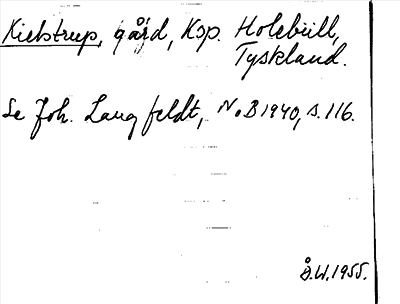 Kielstrup, gård, Ksp. Holebüll,
Tyskland.
Se Joh. Langfeldt, NoB 1940, s. 116.
Å.W. 1955.